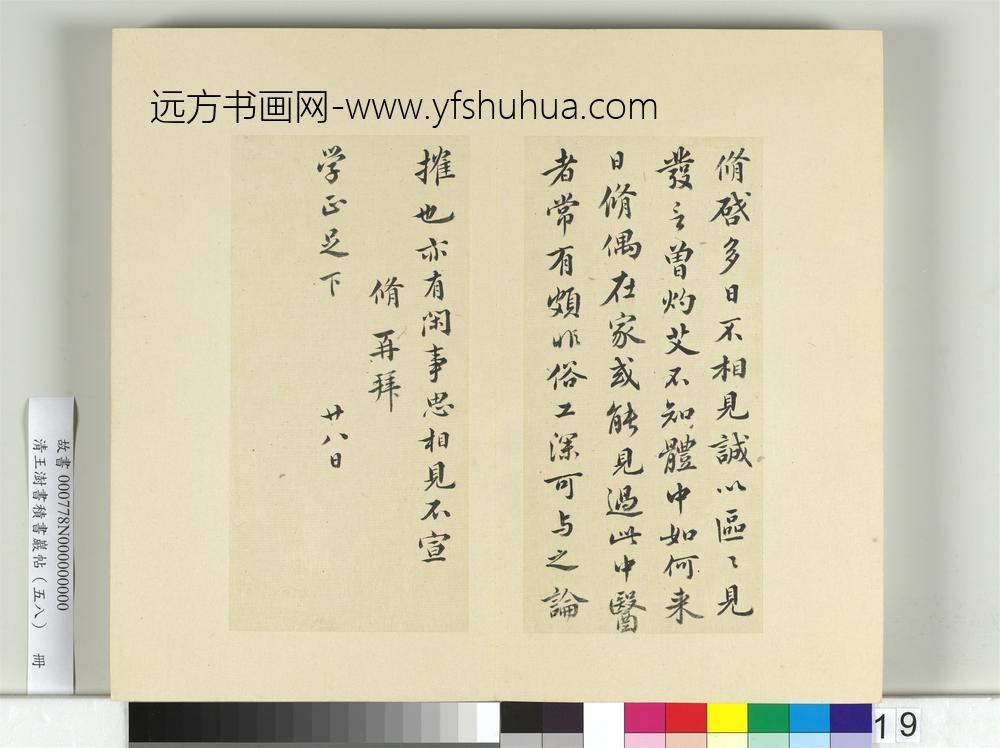 远方书画网-www.yfshuhua.com
脩啓多日不相見誠以區〻見
發言曾灼艾不知體中如何来
日脩偶在家或能見過此中醫
者常有頗非俗工深可与之論
搉也亦有闲事思相見不宣
脩再拜
廿八日
学正足下
故書 000778N000000000
清王澍書積書巖帖（五八） 冊
19